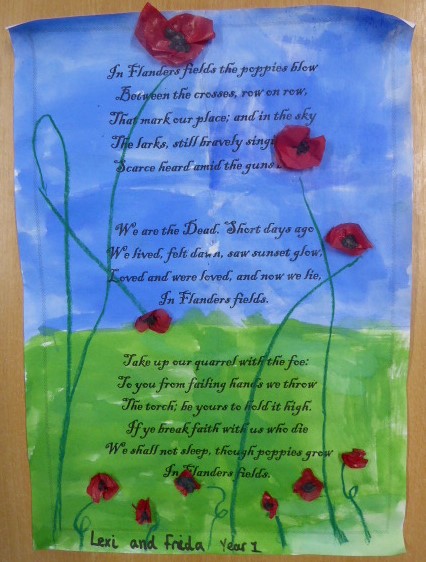 In Flanders fields the poppies blow
Between the crosses, row on row,
That mark our place; and in the sky
The larks, still bravely
Scarce heard amid the guns
We are the Dead. Short days ago
We lived, felt dawn, saw sunset glow,
Loved and were loved, and now we lie,
In Flanders fields.
Take up our quarrel with the foe:
To you from failing hands we throw
The torch; be yours to hold it high.
If ye break faith with us who die
We shall not sleep, though poppies grow
In Flanders fields.
Lexi and Frida Year 1